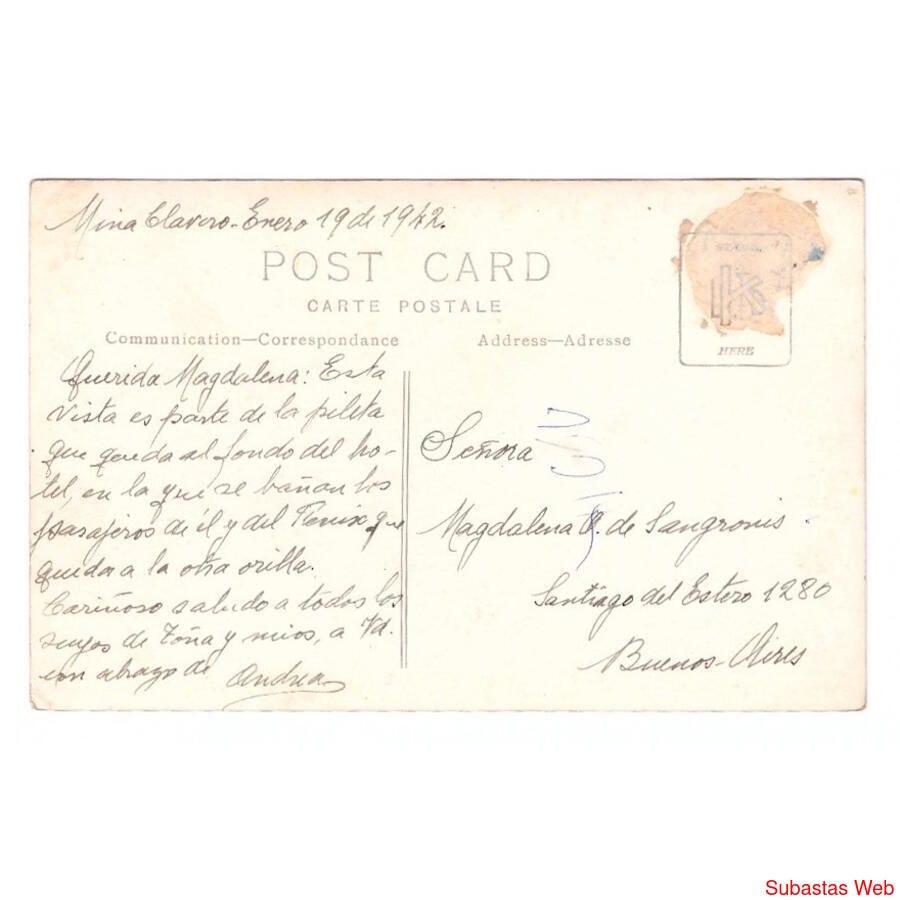 Mina Clavero - Enero 19 de 1942.
POST CARD
CARTE POSTALE
Communication—Correspondance
Address—Adresse
HERE
Querida Magdalena: Esta
vista es parte de la pileta
que queda al fondo del ho-
tel, en la que se bañan los
pasajeros de él y del Fenix que
queda a la otra orilla.
Cariñoso saludo a todos los
suyos de Toña y mios, a Vd.
un abrazo de Andrea
Señora
Magdalena de Sangronis.
Santiago del Estero 1280
Buenos-Aires
Subastas Web